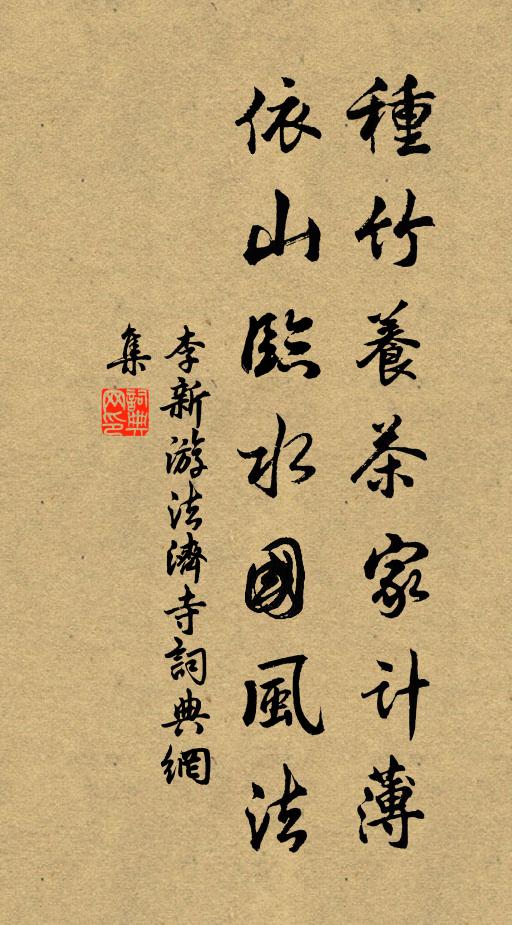 種竹養茶家計薄
依山臨水國風法
李新游法濟寺詞典網
集
詞典
网印